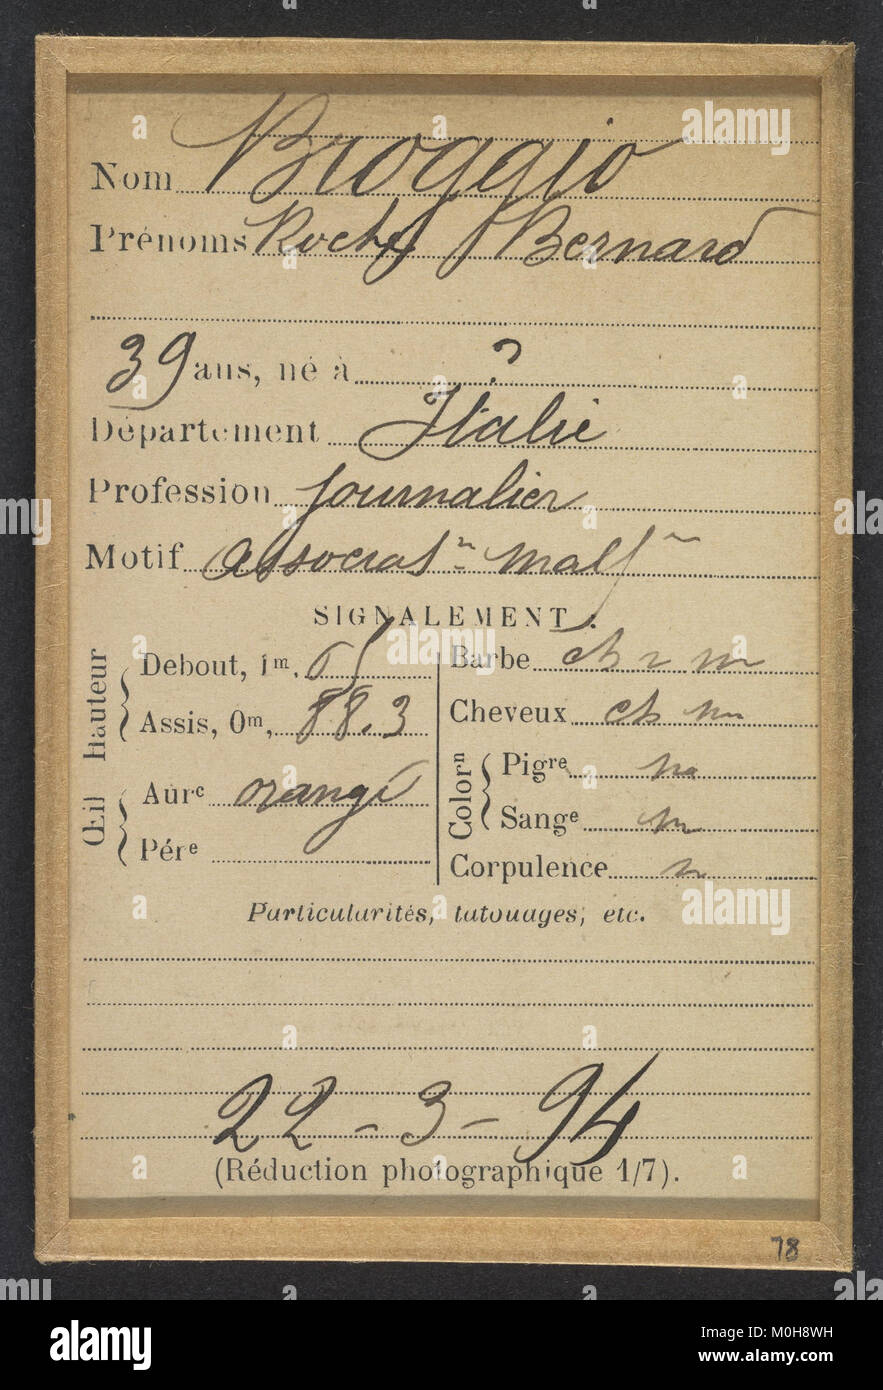 Nom Broggio
Prénoms Roch, Bernard
39 ans, né à ?
Département Italie
Profession Journalier
Motif Associatn malfr
SIGNALEMENT.
Hauteur
Debout, 1m, 65
Assis, 0m, 88.3
Œil
Aure orangé
Pére
Barbe ch r m
Cheveux ch m
Colorn
Pigre
Sange m
Corpulence m
Particularités, tatouages, etc.
22-3-94
(Réduction photographique 1/7).
78
alamy stock photo
M0H8WH
www.alamy.com